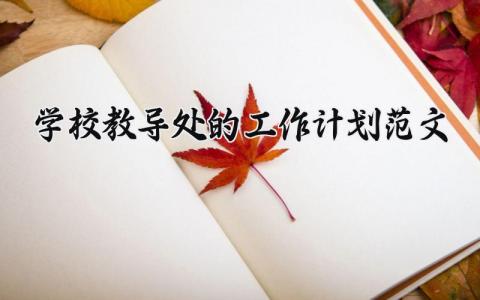 学校教导处的工作计划范文